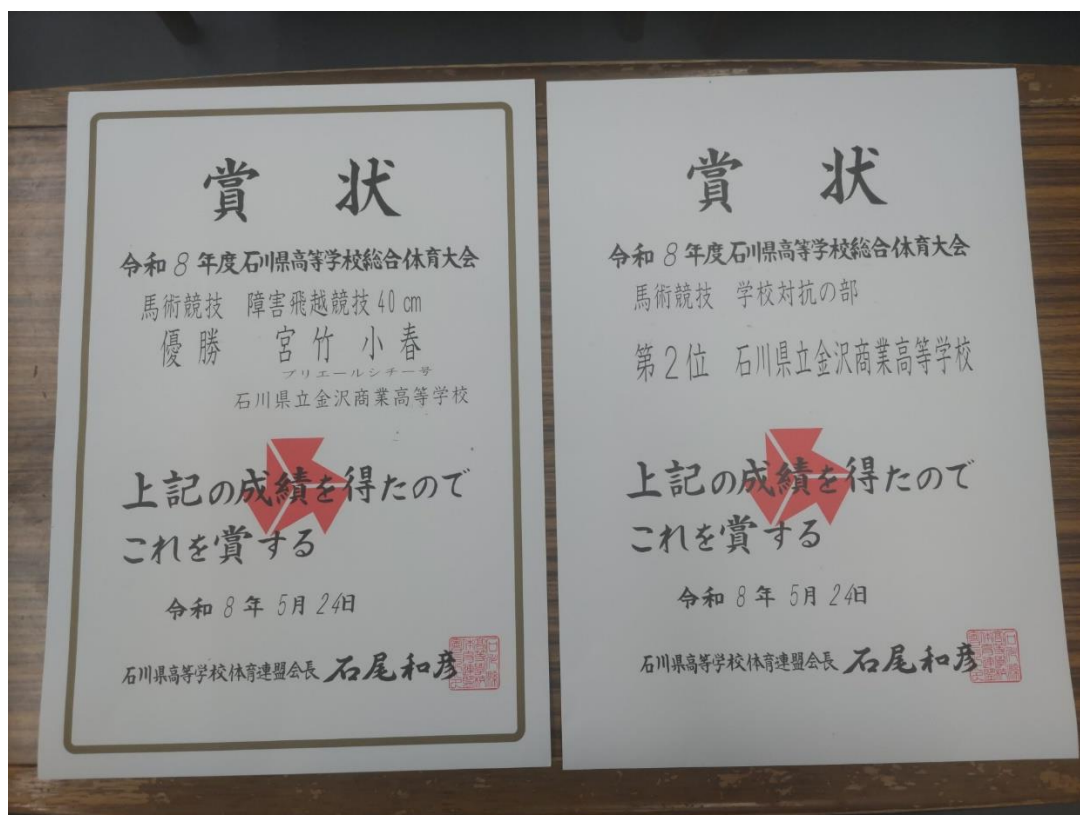 賞状
令和8年度石川県高等学校総合体育大会
馬術競技 障害飛越競技40cm
優勝 宮竹 小春
プリエールシチー号
石川県立金沢商業高等学校
上記の成績を得たので
これを賞する
令和8年5月24日
石川県高等学校体育連盟会長 石尾和彦
賞状
令和8年度石川県高等学校総合体育大会
馬術競技 学校対抗の部
第2位 石川県立金沢商業高等学校
上記の成績を得たので
これを賞する
令和8年5月24日
石川県高等学校体育連盟会長 石尾和彦